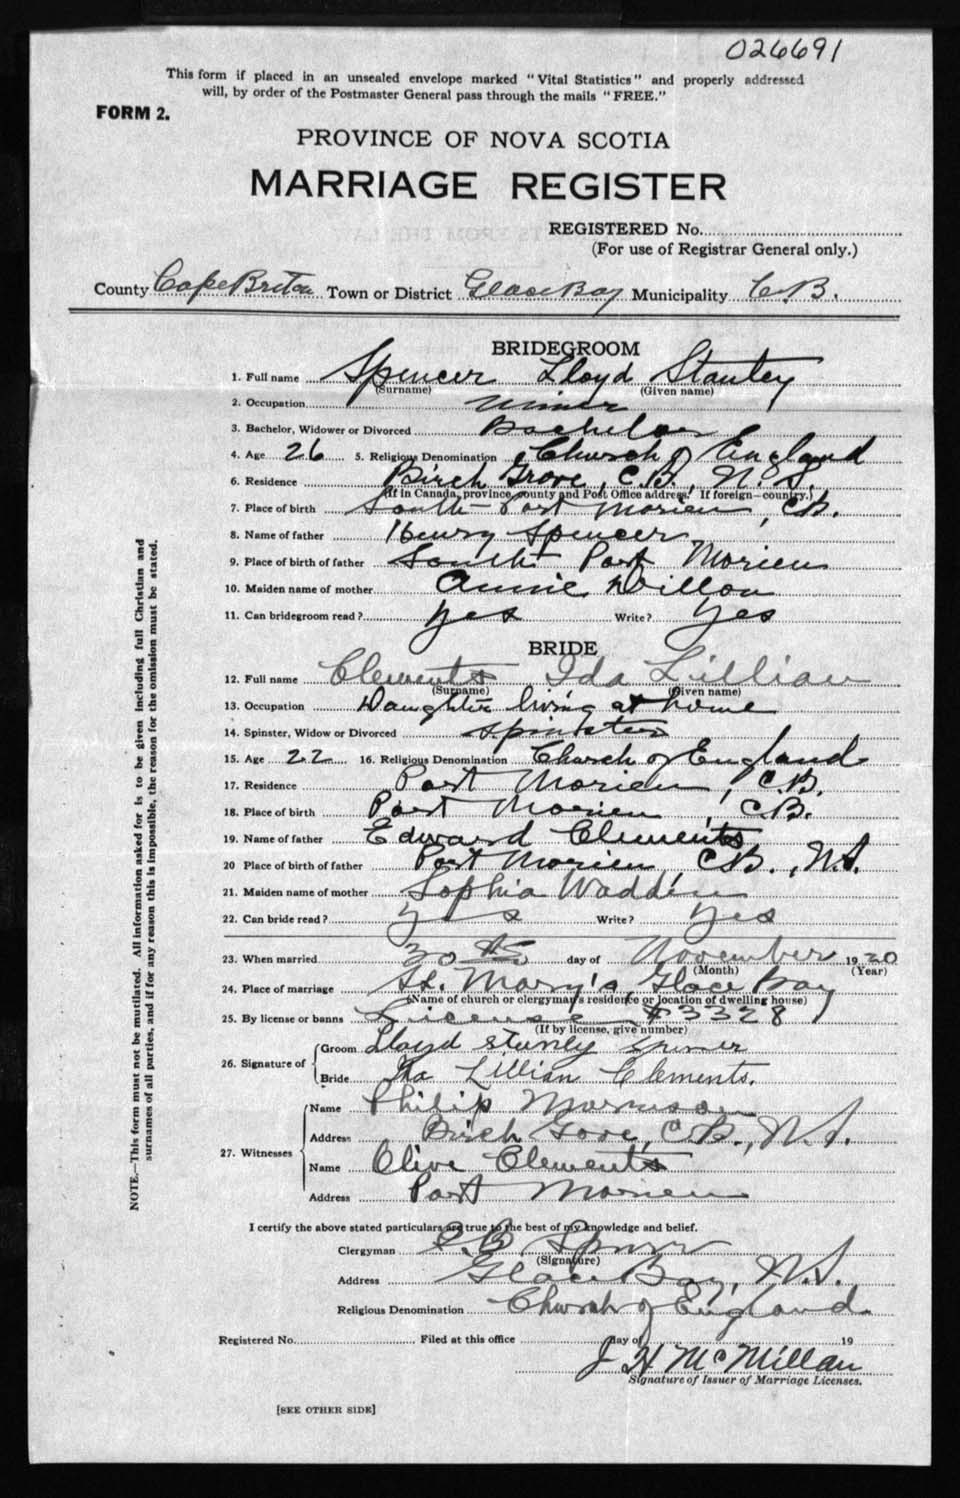 026691
This form if placed in an unsealed envelope marked "Vital Statistics" and properly addressed
will, by order of the Postmaster General pass through the mails "FREE."
FORM 2.
PROVINCE OF NOVA SCOTIA
MARRIAGE REGISTER
REGISTERED No.
(For use of Registrar General only.)
County Cape Breton Town or District Glace Bay Municipality C.B.
BRIDEGROOM
1. Full name Spencer Lloyd Stanley
(Surname) (Given name)
2. Occupation Miner
3. Bachelor, Widower or Divorced Bachelor
4. Age 26 5. Religious Denomination Church of England
6. Residence Birch Grove, C.B., N.S.
(If in Canada, province, county and Post Office address. If foreign—country.)
7. Place of birth South Port Morien, C.B.
8. Name of father Henry Spencer
9. Place of birth of father South Port Morien
10. Maiden name of mother Annie Dillon
11. Can bridegroom read? Yes Write? Yes
BRIDE
12. Full name Clements Ida Lillian
(Surname) (Given name)
13. Occupation Daughter living at home
14. Spinster, Widow or Divorced Spinster
15. Age 22 16. Religious Denomination Church of England
17. Residence Port Morien, C.B.
18. Place of birth Port Morien, C.B.
19. Name of father Edward Clements
20 Place of birth of father Port Morien C.B., N.S.
21. Maiden name of mother Sophia Wadden
22. Can bride read? Yes Write? Yes
23. When married 30th day of November 1920
(Month) (Year)
24. Place of marriage St. Mary's, Glace Bay
(Name of church or clergyman's residence or location of dwelling house)
25. By license or banns License #33328
(If by license, give number)
26. Signature of Groom Lloyd Stanly Spencer
Bride Ida Lillian Clements.
27. Witnesses Name Philip Morrison
Address Birch Gove, C.B., N.S.
Name Olive Clements
Address Port Morien
I certify the above stated particulars are true to the best of my knowledge and belief.
Clergyman Spurr
(Signature)
Address Glace Bay, N.S.
Religious Denomination Church of England
Registered No. Filed at this office day of 19
J H McMillan
Signature of Issuer of Marriage Licenses.
[SEE OTHER SIDE]
NOTE.—This form must not be mutilated. All information asked for is to be given including full Christian and
surnames of all parties, and if for any reason this is impossible, the reason for the omission must be stated.